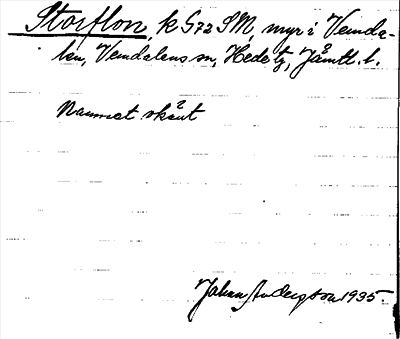 Storflon, k G72 SM, myr i Vemda-
len, Vemdalens sn, Hede tg, Jämtl. l.
Namnet okänt
Johan Anderzson 1935.